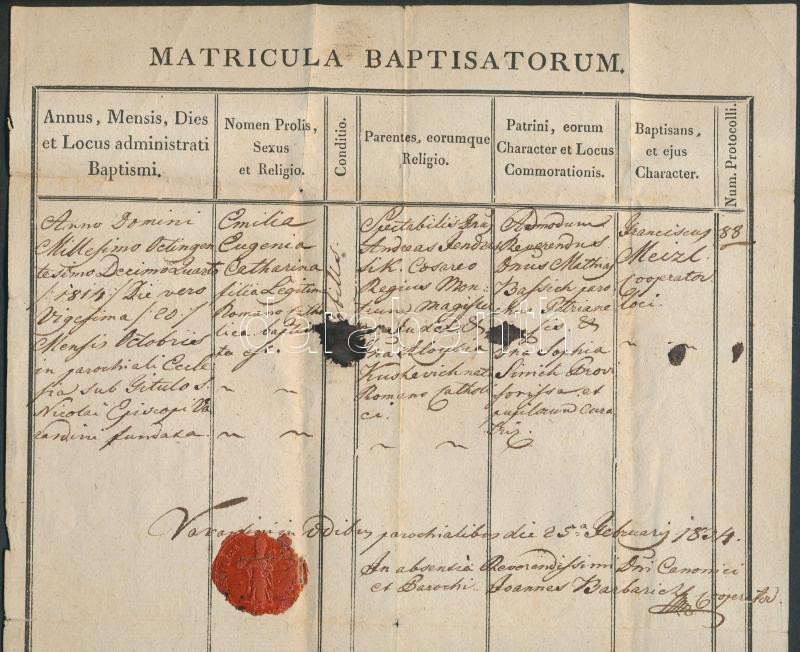 MATRICULA BAPTISATORUM.
Annus, Mensis, Dies
et Locus administrati
Baptismi.
Nomen Prolis,
Sexus
et Religio.
Conditio.
Parentes, eorumque
Religio.
Patrini, eorum
Character et Locus
Commorationis.
Baptisans,
et ejus
Character.
Num. Protocolli.
Anno Domini
Millesimo Octingen
tesimo Decimo Quarto
/:1814:/ Die vero
Vigesima /:20:/
Mensis Octobris
in parochiali Eccle
sia sub Titulo S.
Nicolai Episcopi Va
rasdini fundata.
Emilia
Eugenia
Catharina
filia Legitima
Romano catho
lica baptisa
ta est.
Spectabilis
Andreas
Cæsareo
Regius Mon
magister
et Judex &
Dna Aloysia
Romano Catholi
ci.
Admodum
Reverendus
Dnus Mathias
Bassich paro
chus Petriane
&
Dna Sophia
Simich Provi
sorissa, et
Franciscus
Meizl
Cooperator
Loci.
88
Varasdini in Ædibus parochialibus die 25a February 1834.
In absentia Reverendissimi Dni Canonici
et Parochi. Joannes Barbarich
Cooperator.
darabanth